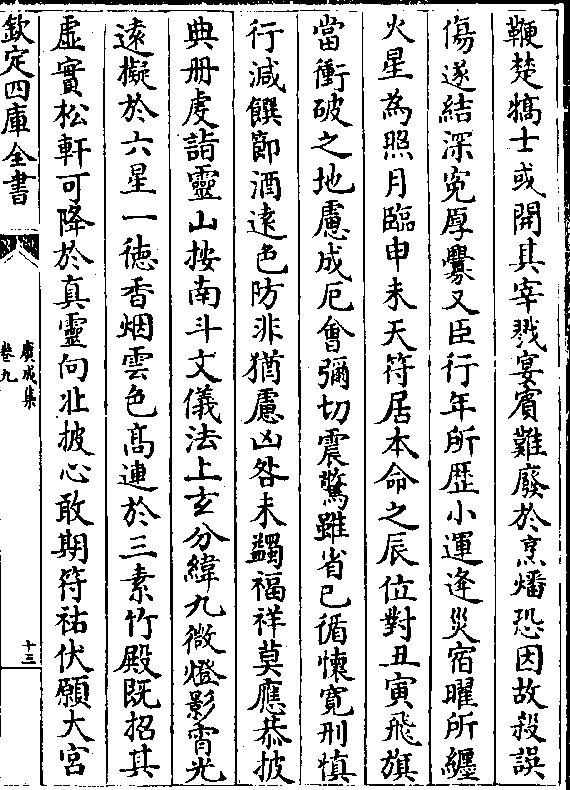 鞭楚犒士或開其宰戮宴賓難廢於烹燔恐因故殺誤
傷遂結深寃厚釁又臣行年所歴小運逄災宿曜所纒
火星為照月臨申未天符居本命之辰位對丑寅飛旗
當衝破之地慮成厄會彌切震驚雖省已循懐寛刑慎
行減饌節酒逺色防非猶慮凶咎未蠲福祥莫應恭披
典册虔詣靈山按南斗文儀法上𤣥分緯九微燈影霄光
逺擬於六星一徳香烟雲色髙連於三素竹殿既招其
虚實松軒可降於真靈向壯披心敢期符祐伏願大宫
欽定四庫全書
廣成集
卷九
十三